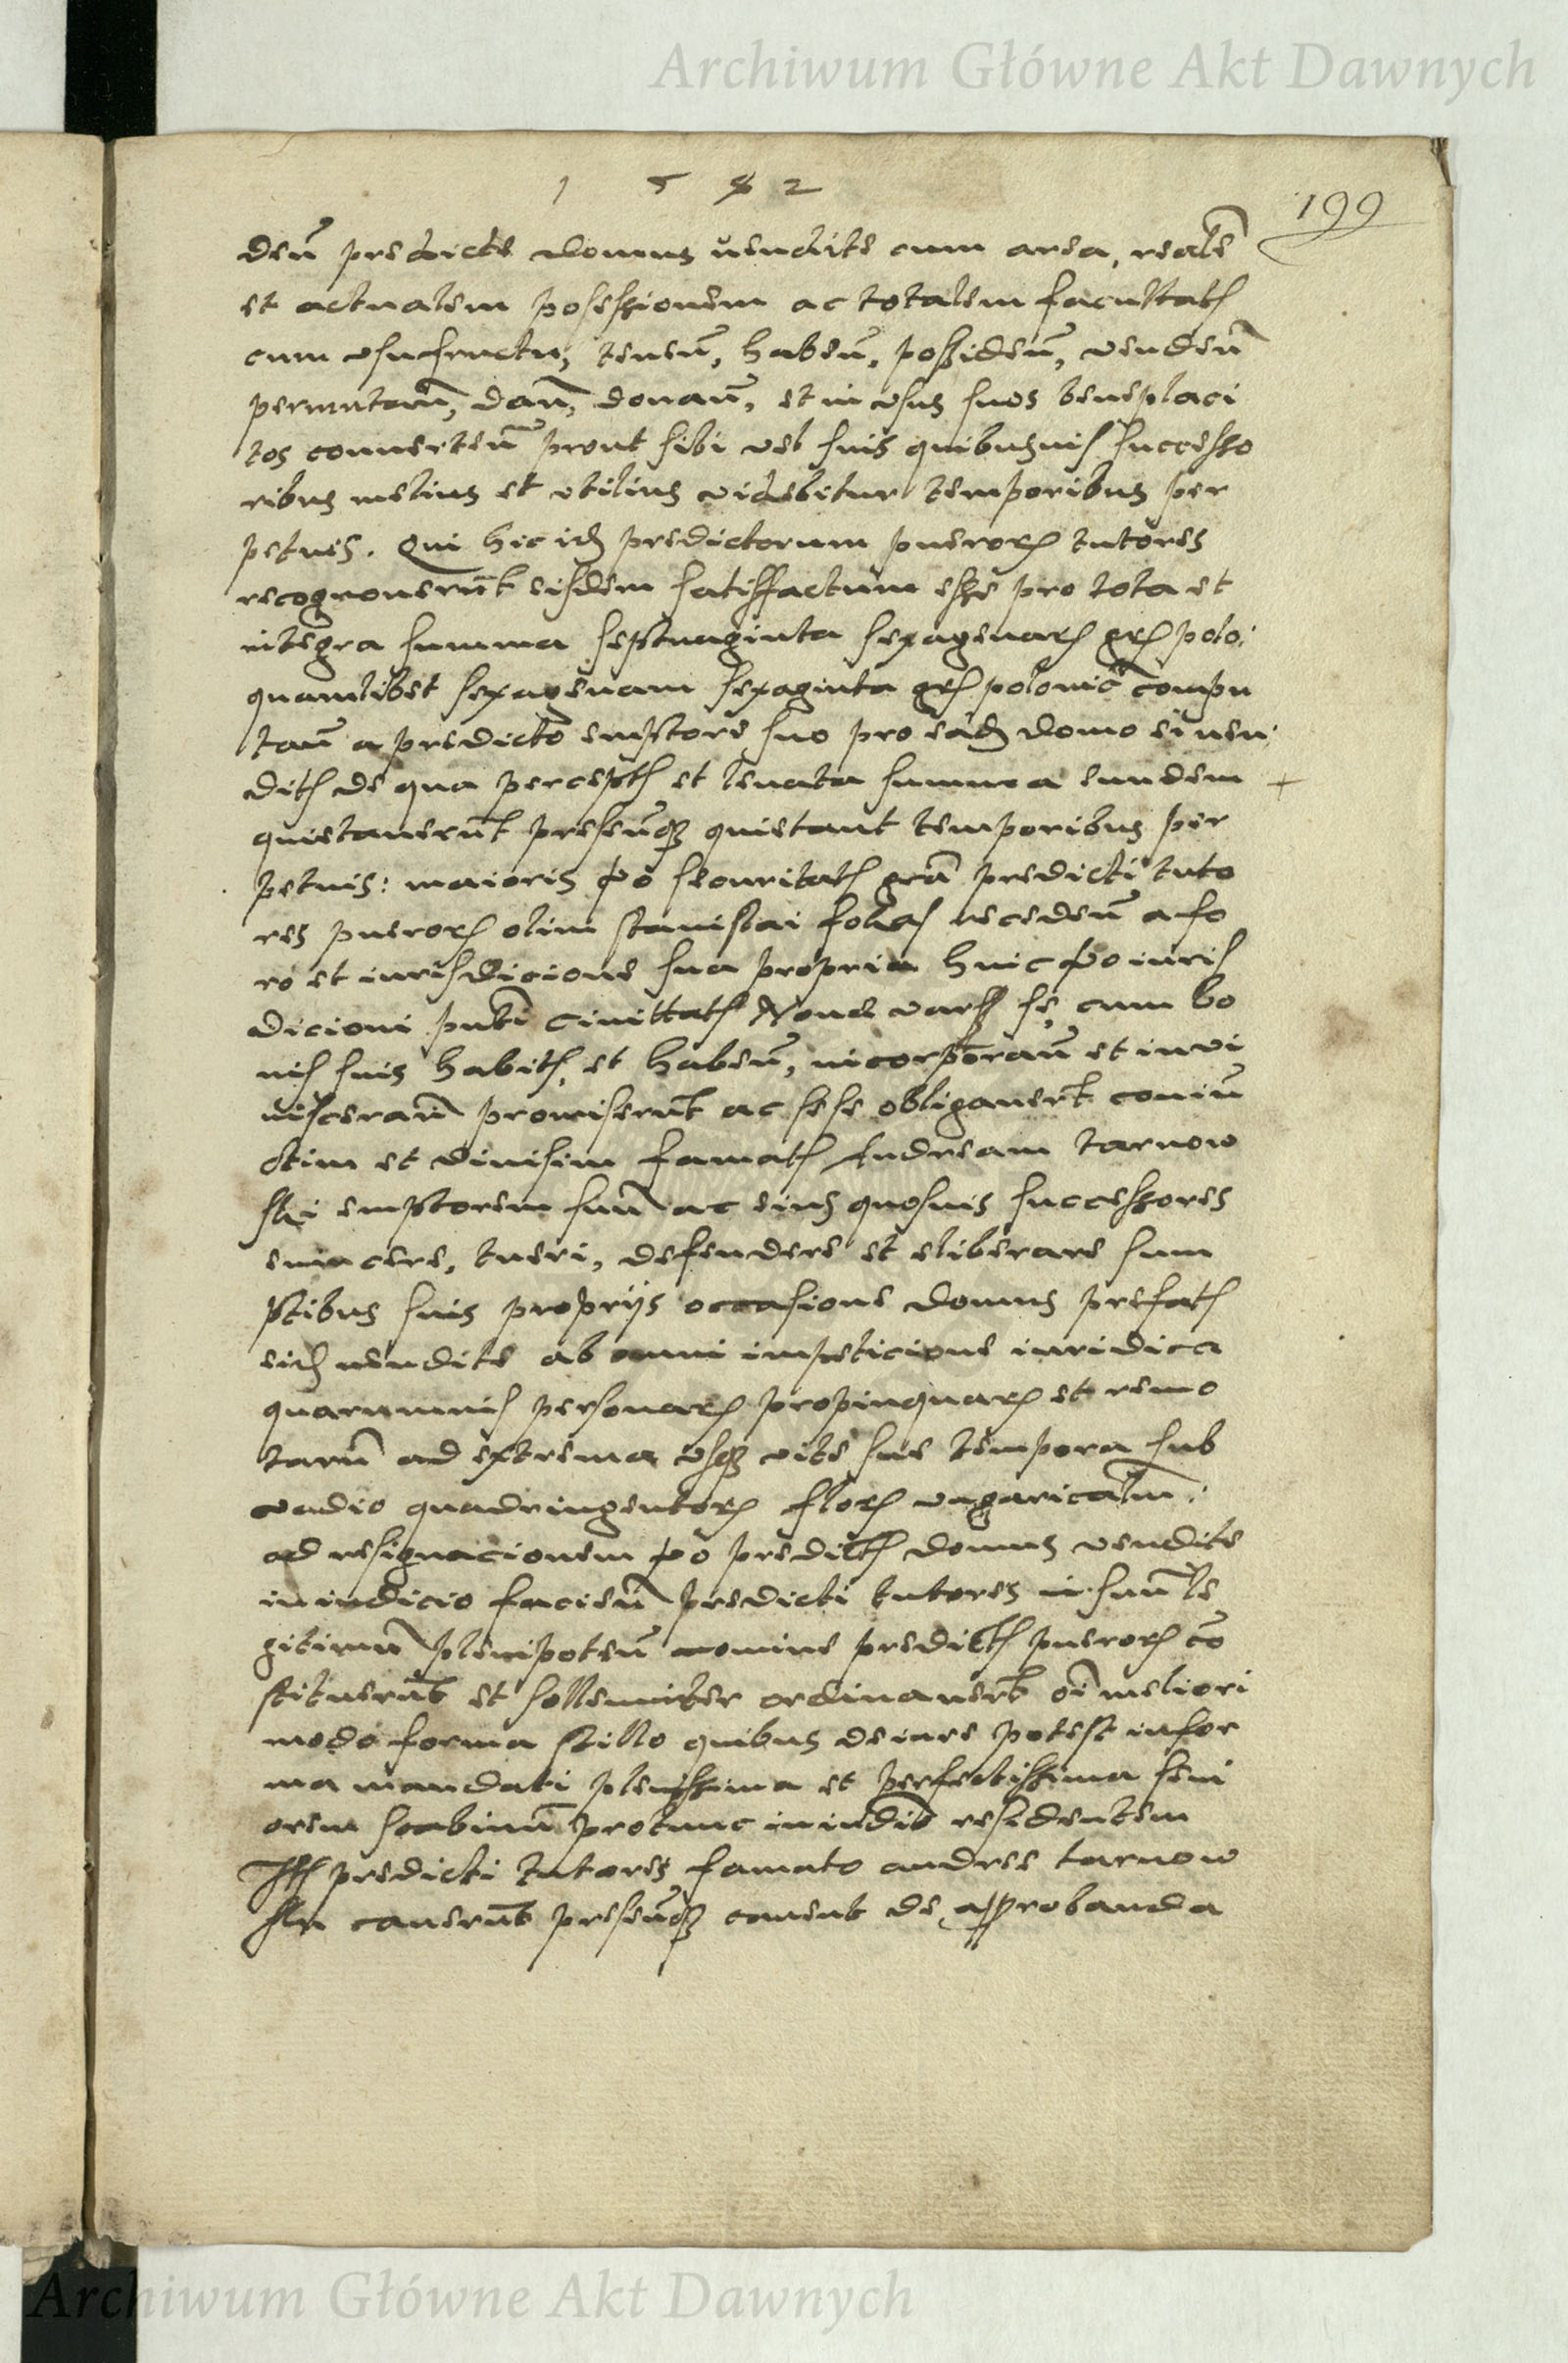 Archiwum Główne Akt Dawnych
1 5 8 2
199
deū predicte domus vendite cum area, realē
et actualem posessionem ac totalem facultatẽ
cum vsufructu, teneū, habeū, possideū, vendeū
permutanū, danū, donanū, et in vsus suos beneplaci
tos conuerteū prout sibi vel suis quibusuis successo
ribus melius et vtilius videbitur temporibus per
petuis. Qui hic iidẽ predictorum puerorũ tutores
recognouerūt eisdem satisfactum esse pro tota et
integra summa septuaginta sexagenarũ grũ polo:
quamlibet sexagenam sexaginta grũ polonicū compu
tanū a predicto emptore suo pro eadẽ domo ei ven
ditẽ de qua perceptẽ et leuata summa eundem
quietauerūt preseūqꝫ quietant temporibus per
petuis: maioris vo securitatẽ grā predicti tuto
res puerorũ olim stanislai recedeū a fo
ro et iurisdicione sua propria huic vo iuris
dicioni pnti ciuittatẽ Noue varsꝫ se cum bo
nis suis habitẽ, et habeū, incorporanū et invi
nisceranū promiserūt ac sese obligauerūt coniū
ctim et diuisim famatẽ Andream tarnow
ski emptorem suū ac eius quosuis successores
euincere, tueri, defendere et eliberare sum
ptibus suis proprijs occasione domus prefatẽ
eidẽ vendite ab omni impeticione iuridica
quarumuis personarũ propinquarũ et remo
tarū ad extrema vsqꝫ vite sue tempora sub
vadio quadringentorũ florũ vngaricalm:
ad resignacionem vo predictẽ domus vendite
in iudicio facieū predicti tutores in suū le
gitimū plenipoteū nomine predictẽ puerorũ cō
stituerūt et sollenniter ordinauerūt oī meliori
modo forma stillo quibus de iure potest in for
ma mandati plenissima et perfectissima seni
orem scabinū protunc in iudīo residentem
predicti tutores famato andree tarnow
sky cauerūt preseūqꝫ cauent de approbanda
Archiwum Główne Akt Dawnych